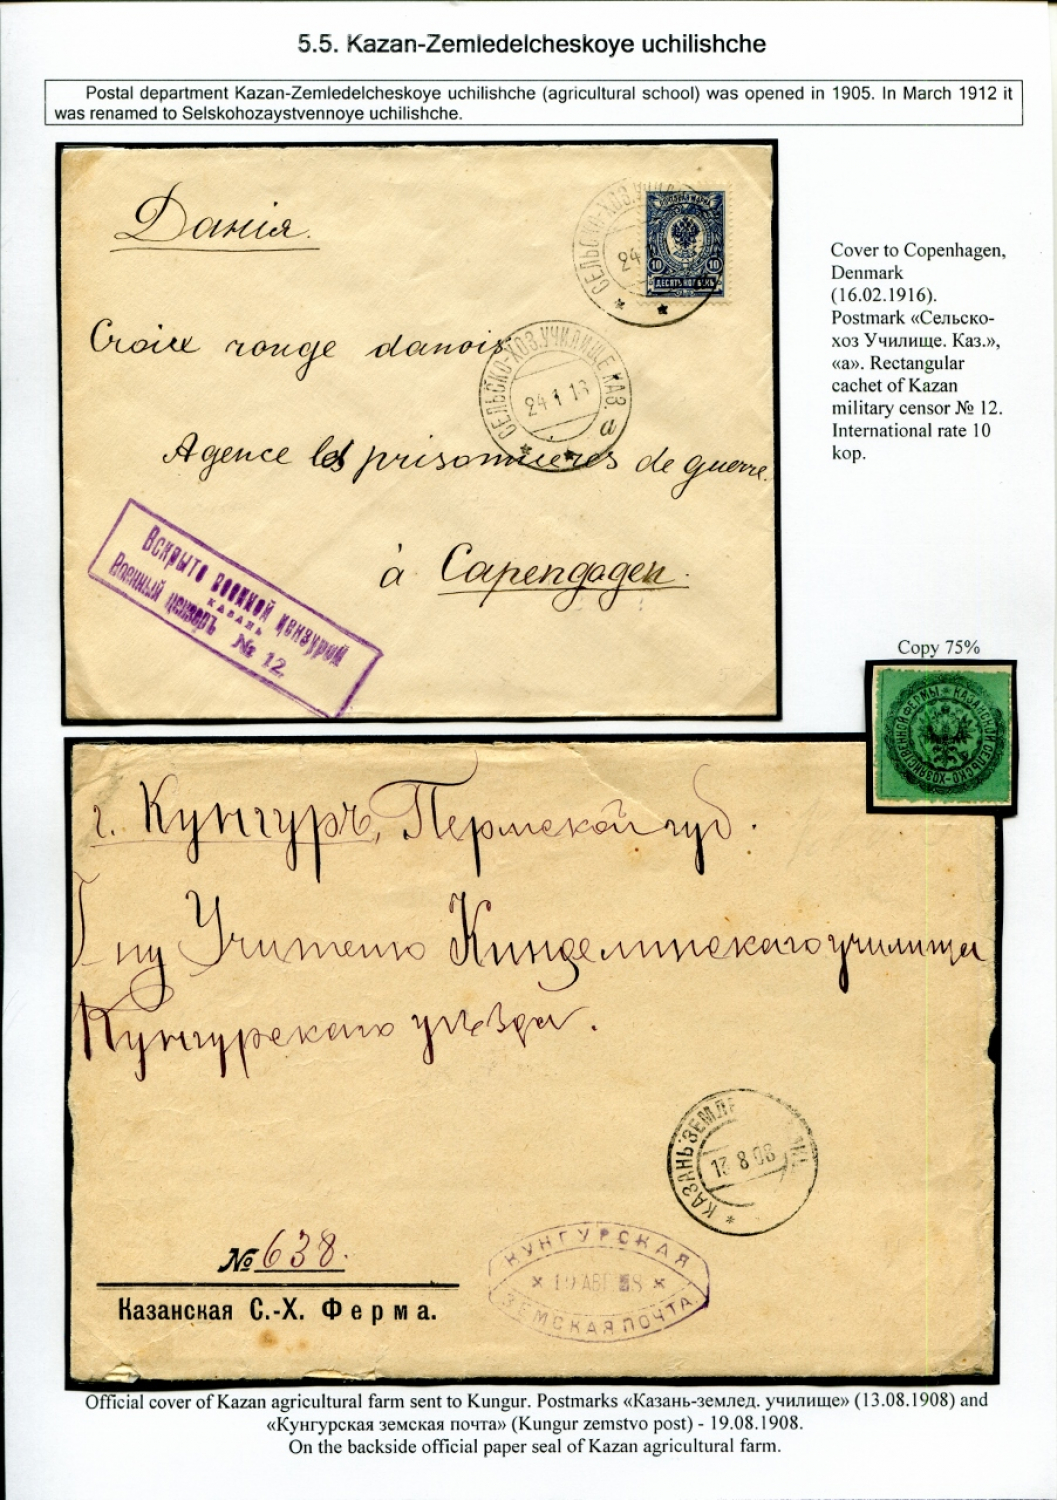 5.5. Kazan-Zemledelcheskoye uchilishche
Postal department Kazan-Zemledelcheskoye uchilishche (agricultural school) was opened in 1905. In March 1912 it
was renamed to Selskohozaystvennoye uchilishche.
Данія.
СЕЛЬСКО-ХОЗ.УЧИЛ
24
10 10
ДЕСЯТЬ КОПѢЕКЪ
Croix rouge danois
СЕЛЬСКО-ХОЗ.УЧИЛИЩЕ КАЗ.
24 1 16
а
Agence les prisonnieres de guerre.
à Capengagen.
Вскрыто военной цензурой
КАЗАНЬ
Военный цензоръ № 12.
Cover to Copenhagen,
Denmark
(16.02.1916).
Postmark «Сельско-
хоз Училище. Каз.»,
«а». Rectangular
cachet of Kazan
military censor № 12.
International rate 10
kop.
Copy 75%
КАЗАНСКОЙ СЕЛЬСКО-ХОЗЯЙСТВЕННОЙ ФЕРМЫ
г. Кунгуръ, Пермской губ.
Г ну Учителю Кинделинскаго училища
Кунгурскаго уѣзда.
КАЗАНЬ ЗЕМЛЕ
13 8 08
№ 638.
Казанская С.-Х. Ферма.
КУНГУРСКАЯ
19 АВГ 8
ЗЕМСКАЯ ПОЧТА
Official cover of Kazan agricultural farm sent to Kungur. Postmarks «Казань-землед. училище» (13.08.1908) and
«Кунгурская земская почта» (Kungur zemstvo post) - 19.08.1908.
On the backside official paper seal of Kazan agricultural farm.